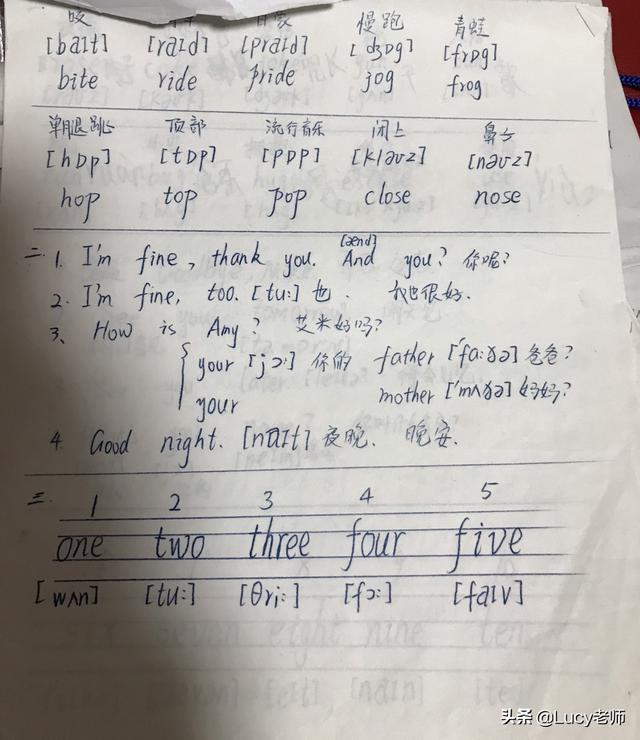 咬 慢跑 青蛙
[baIt] [raId] [praId] [dʒɒg] [frɒg]
bite ride pride jog frog
单腿跳 顶部 流行音乐 闭上 鼻子
[hɒp] [tɒp] [pɒp] [kləʊz] [nəʊz]
hop top pop close nose
[ænd]
二. 1. I'm fine, thank you. And you? 你呢?
2. I'm fine, too. [tu:] 也. 我也很好.
3. How is Amy? 艾米好吗?
your [jɔ:] 你的 father ['fa:ðə] 爸爸?
your mother ['mʌðə] 妈妈?
4. Good night. [naIt] 夜晚. 晚安.
三. 1 2 3 4 5
one two three four five
[wʌn] [tu:] [θri:] [fɔ:] [faIv]
头条 @Lucy老师